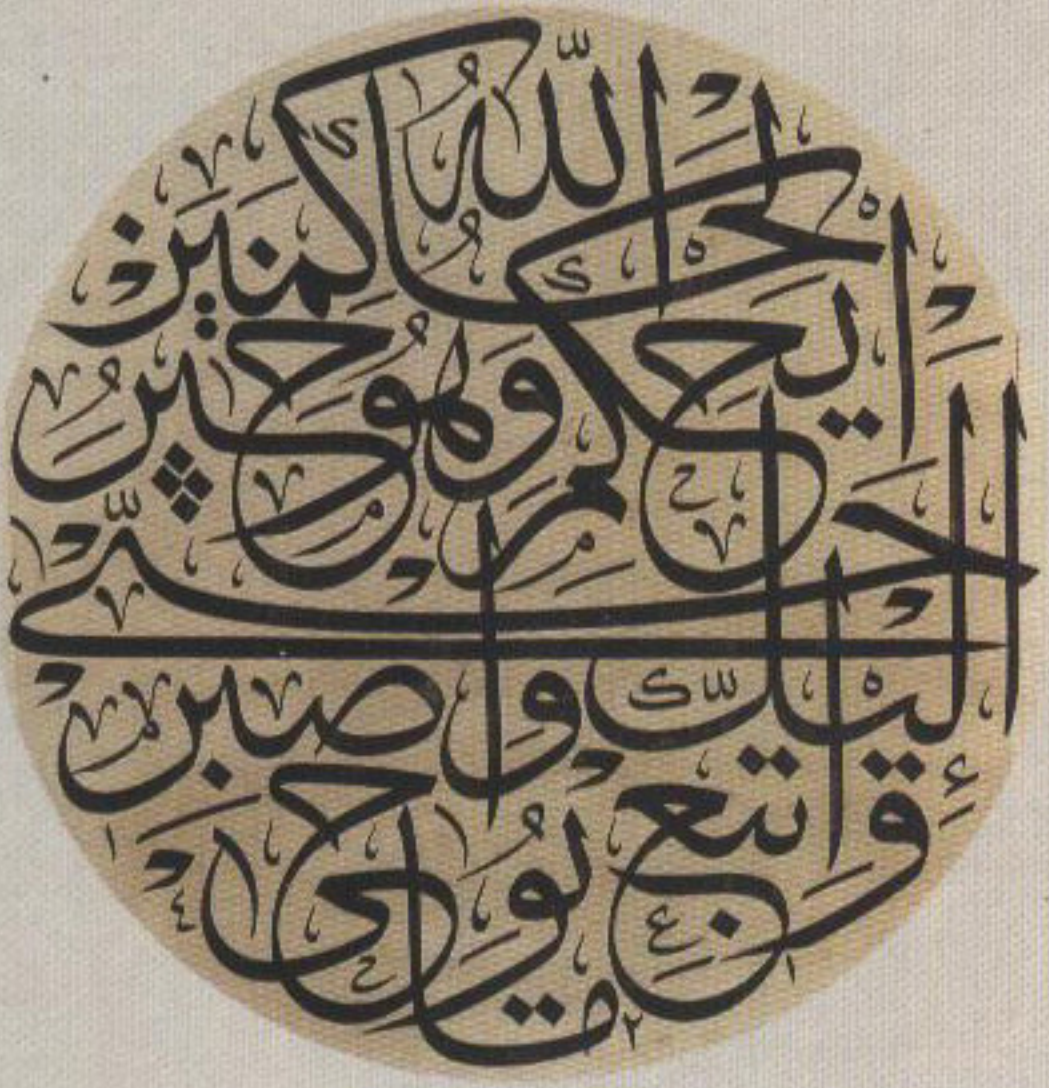 واتبع ما يوحى
إليك واصبر
حتى
يحكم الله وهو خير
الحاكمين